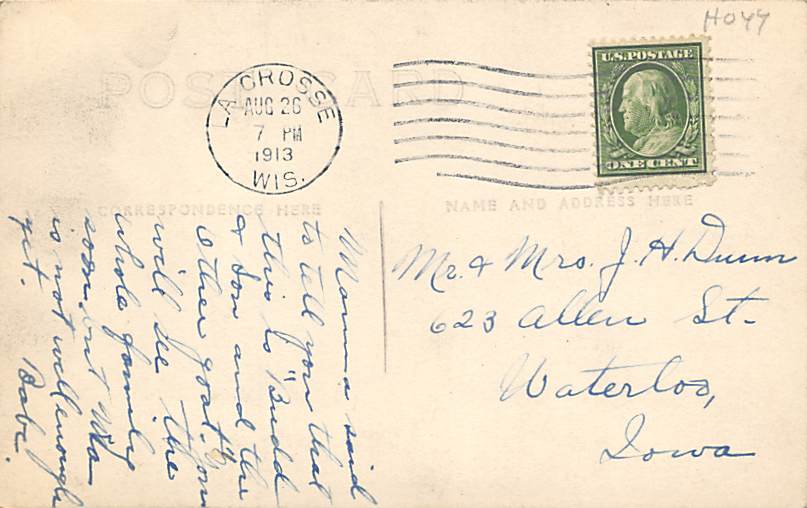 HO44
POST CARD
U.S. POSTAGE
ONE CENT
LA CROSSE
AUG 26
7 PM
1913
WIS.
CORRESPONDENCE HERE
NAME AND ADDRESS HERE
Mamma said
to tell you that
this is "Budd
& Son and the
other goat." You
will see the
whole family
soon, but Ma
is not well enough
yet. Babe.
Mr. & Mrs. J. H. Dunn
623 Allen St.
Waterloo,
Iowa